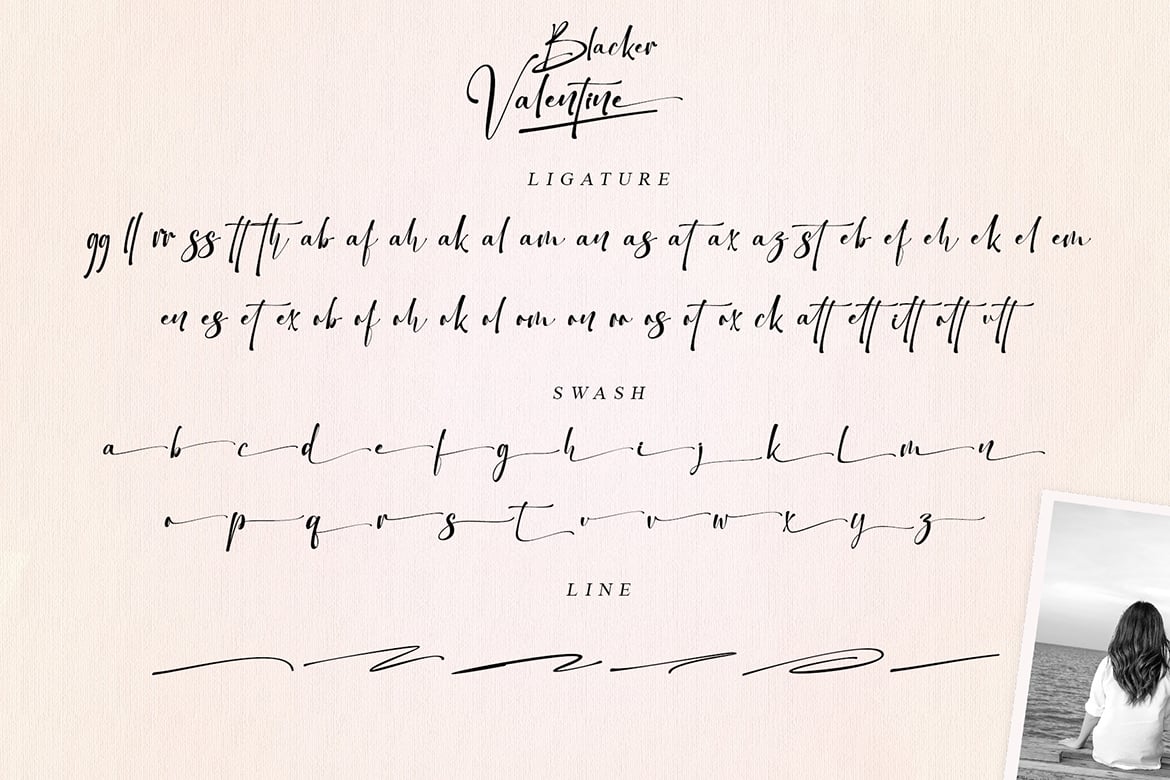 Blacker
Valentine
LIGATURE
gg ll rr ss tt th ab af ah ak al am an as at ax az st eb ef eh ek el em
en es et ex ob of oh ok ol om on oo os ot ox ck att ett itt ott utt
SWASH
a b c d e f g h i j k l m n
o p q r s t u v w x y z
LINE